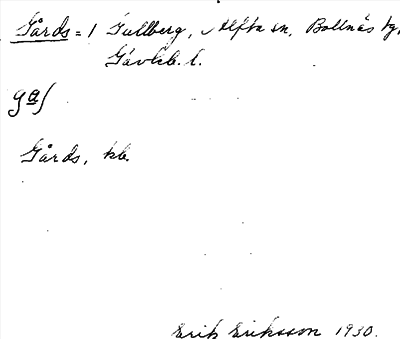 Gårds = 1 Gullberg, Alfta sn, Bollnäs tg,
Gävleb. l.
gɑ̲ſ
Gårds, kb.
Erik Eriksson 1930.